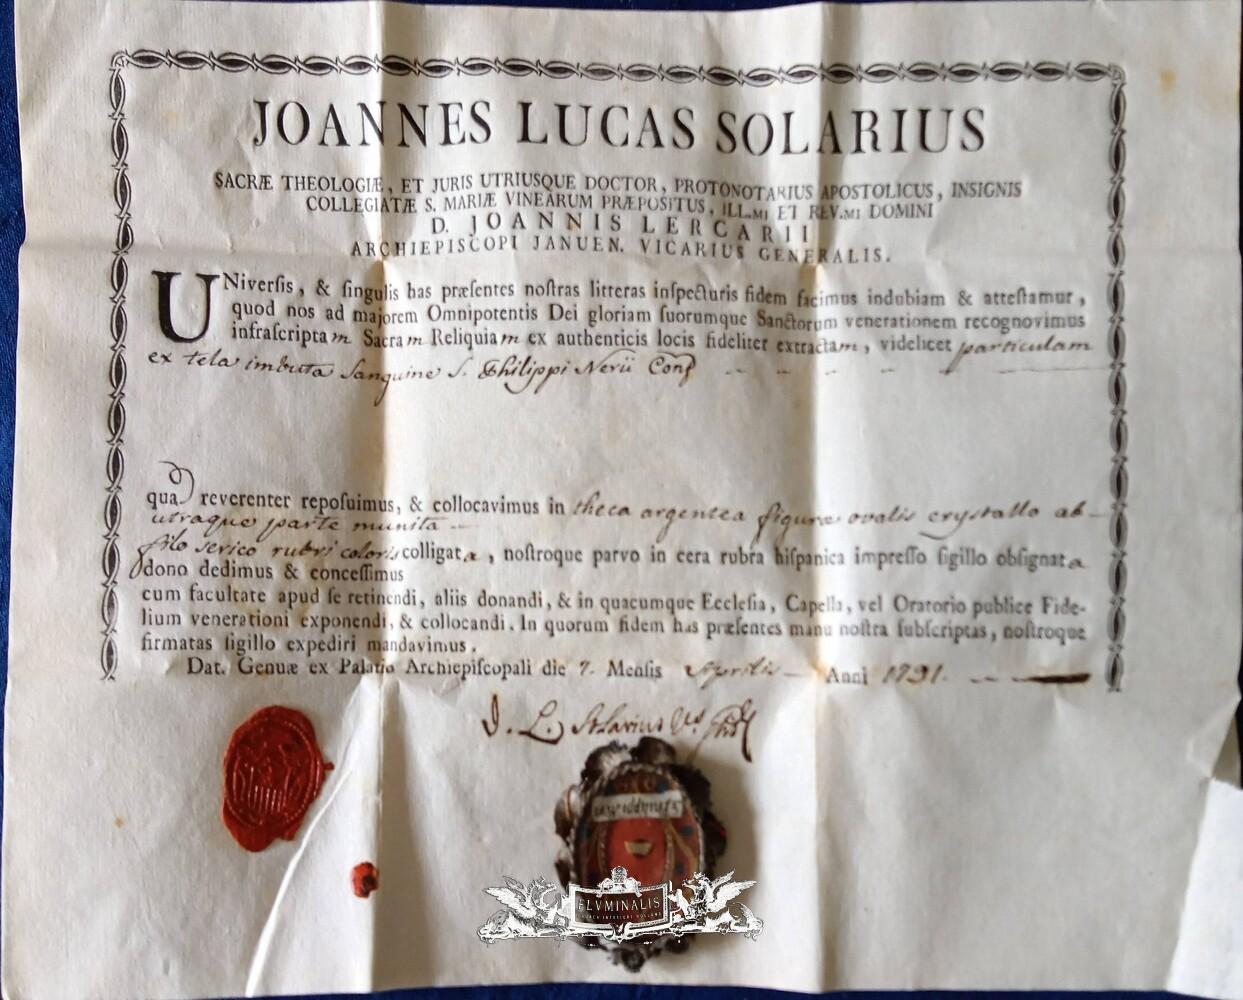 JOANNES LUCAS SOLARIUS
SACRÆ THEOLOGIÆ, ET JURIS UTRIUSQUE DOCTOR, PROTONOTARIUS APOSTOLICUS, INSIGNIS
COLLEGIATÆ S. MARIÆ VINEARUM PRÆPOSITUS, ILL.MI ET REV.MI DOMINI
D. JOANNIS LERCARII
ARCHIEPISCOPI JANUEN. VICARIUS GENERALIS.
UNiverſis, & ſingulis has præſentes noſtras litteras inſpecturis fidem facimus indubiam & atteſtamur,
quod nos ad majorem Omnipotentis Dei gloriam ſuorumque Sanctorum venerationem recognovimus
infraſcriptam Sacram Reliquiam ex authenticis locis fideliter extractam, videlicet particulam
ex tela imbuta Sanguine S. Philippi Nerii Conf
qua reverenter repoſuimus, & collocavimus in theca argentea figuræ ovalis crystallo ab
utraque parte munita
filo serico rubri coloris colligata, noſtroque parvo in cera rubra hiſpanica impreſſo ſigillo obſignata
dono dedimus & conceſſimus
cum facultate apud ſe retinendi, aliis donandi, & in quacumque Eccleſia, Capella, vel Oratorio publice Fide-
lium venerationi exponendi, & collocandi. In quorum fidem has præſentes manu noſtra ſubſcriptas, noſtroque
firmatas ſigillo expediri mandavimus.
Dat. Genuæ ex Palatio Archiepiſcopali die 7. Menſis Aprilis Anni 1791.
J. L. Solarius
FLVMINALIS
CHURCH INTERIORS HOLLAND